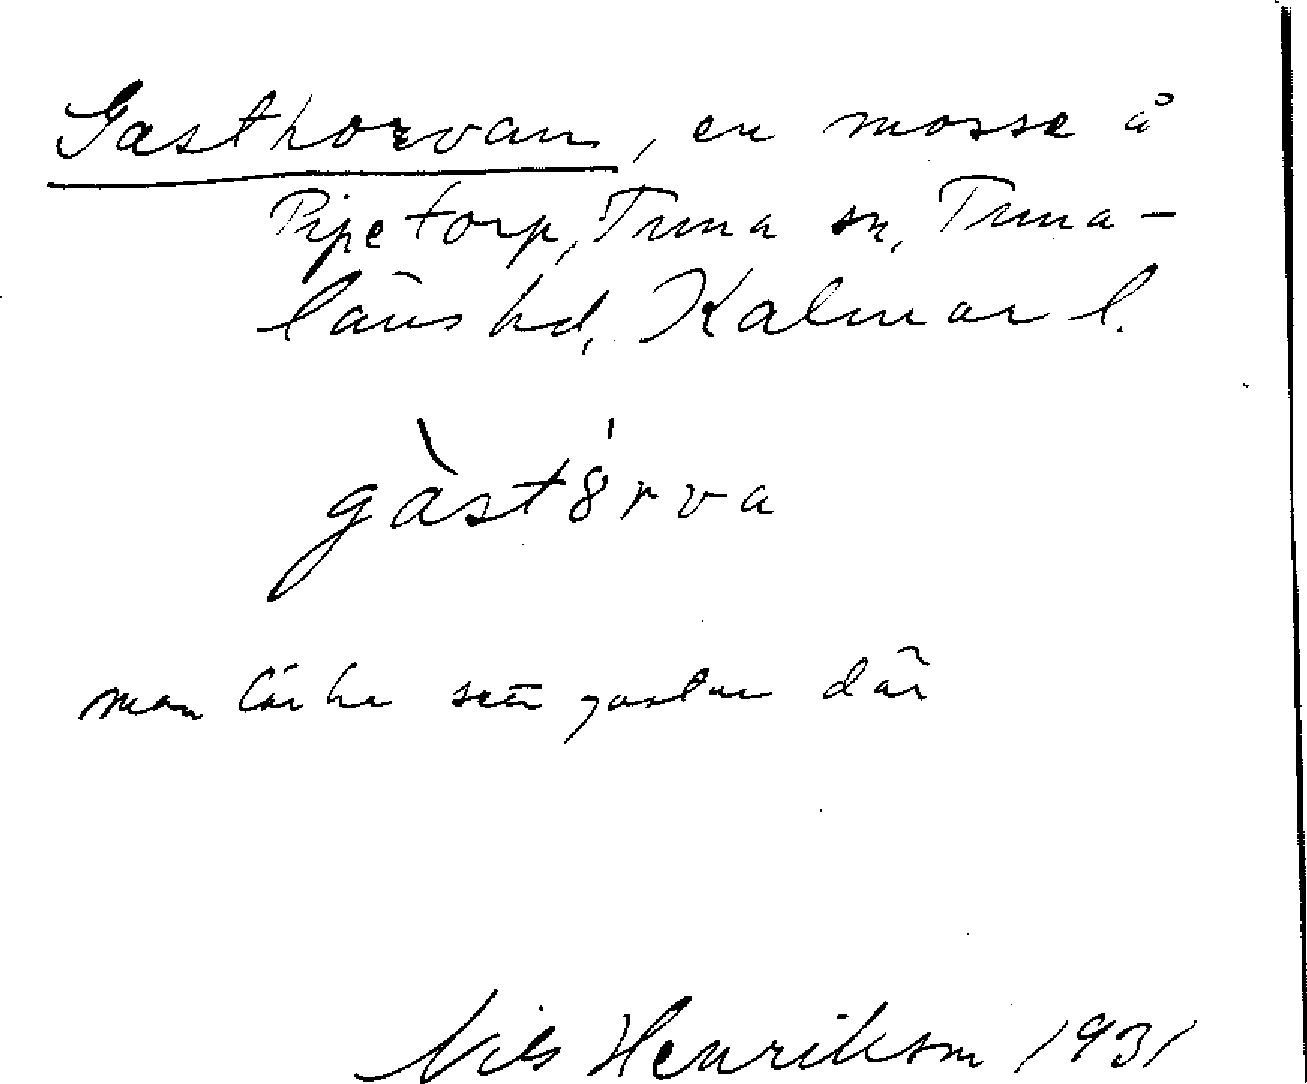 Gasthorvan, en mosse å
Pipetorp, Tuna sn, Tuna-
läns hd, Kalmar l.
gàst8́rva
man lär ha sett gastar där
Nils Henrikson 1931